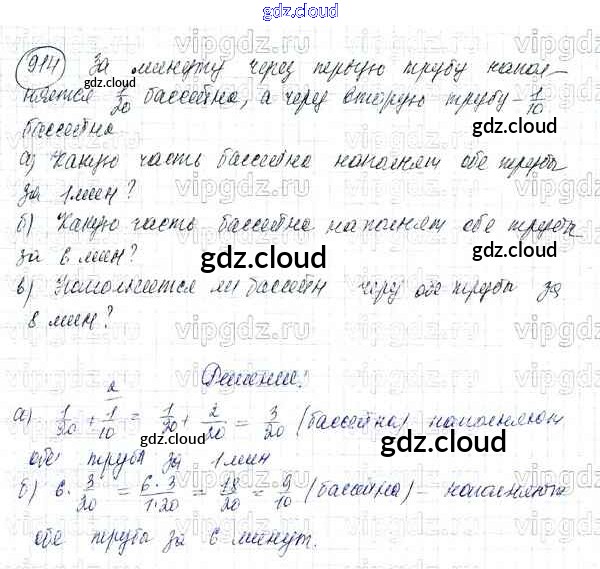 gdz.cloud
914 За минуту через первую трубу напол-
няется 1/20 бассейна, а через вторую трубу - 1/10
бассейна
а) Какую часть бассейна наполнят обе трубы
за 1 мин?
б) Какую часть бассейна наполнят обе трубы
за 6 мин?
в) Наполняется ли бассейн через обе трубы за
8 мин?
Решение:
а) 1/20 + 1/10 = 1/20 + 2/20 = 3/20 (бассейна) наполняют
обе трубы за 1 мин
б) 6 · 3/20 = 6·3/1·20 = 18/20 = 9/10 (бассейна) - наполняют
обе трубы за 6 минут.